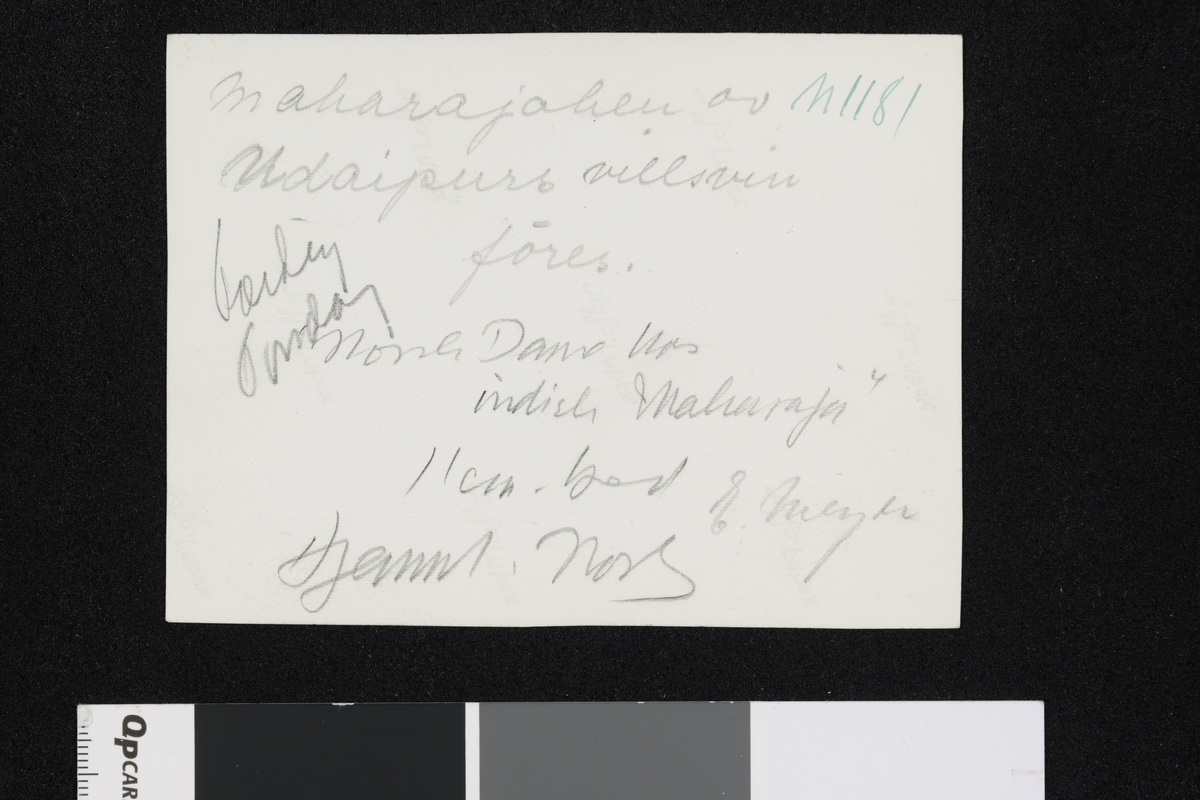 maharajahen av N1181
Udaipurs villsvin
fôres.
Norsk Dame hos
indisk Maharaja"
11 cm. bred
E. Meyer
Hjemmet. Norsk
QPCAR